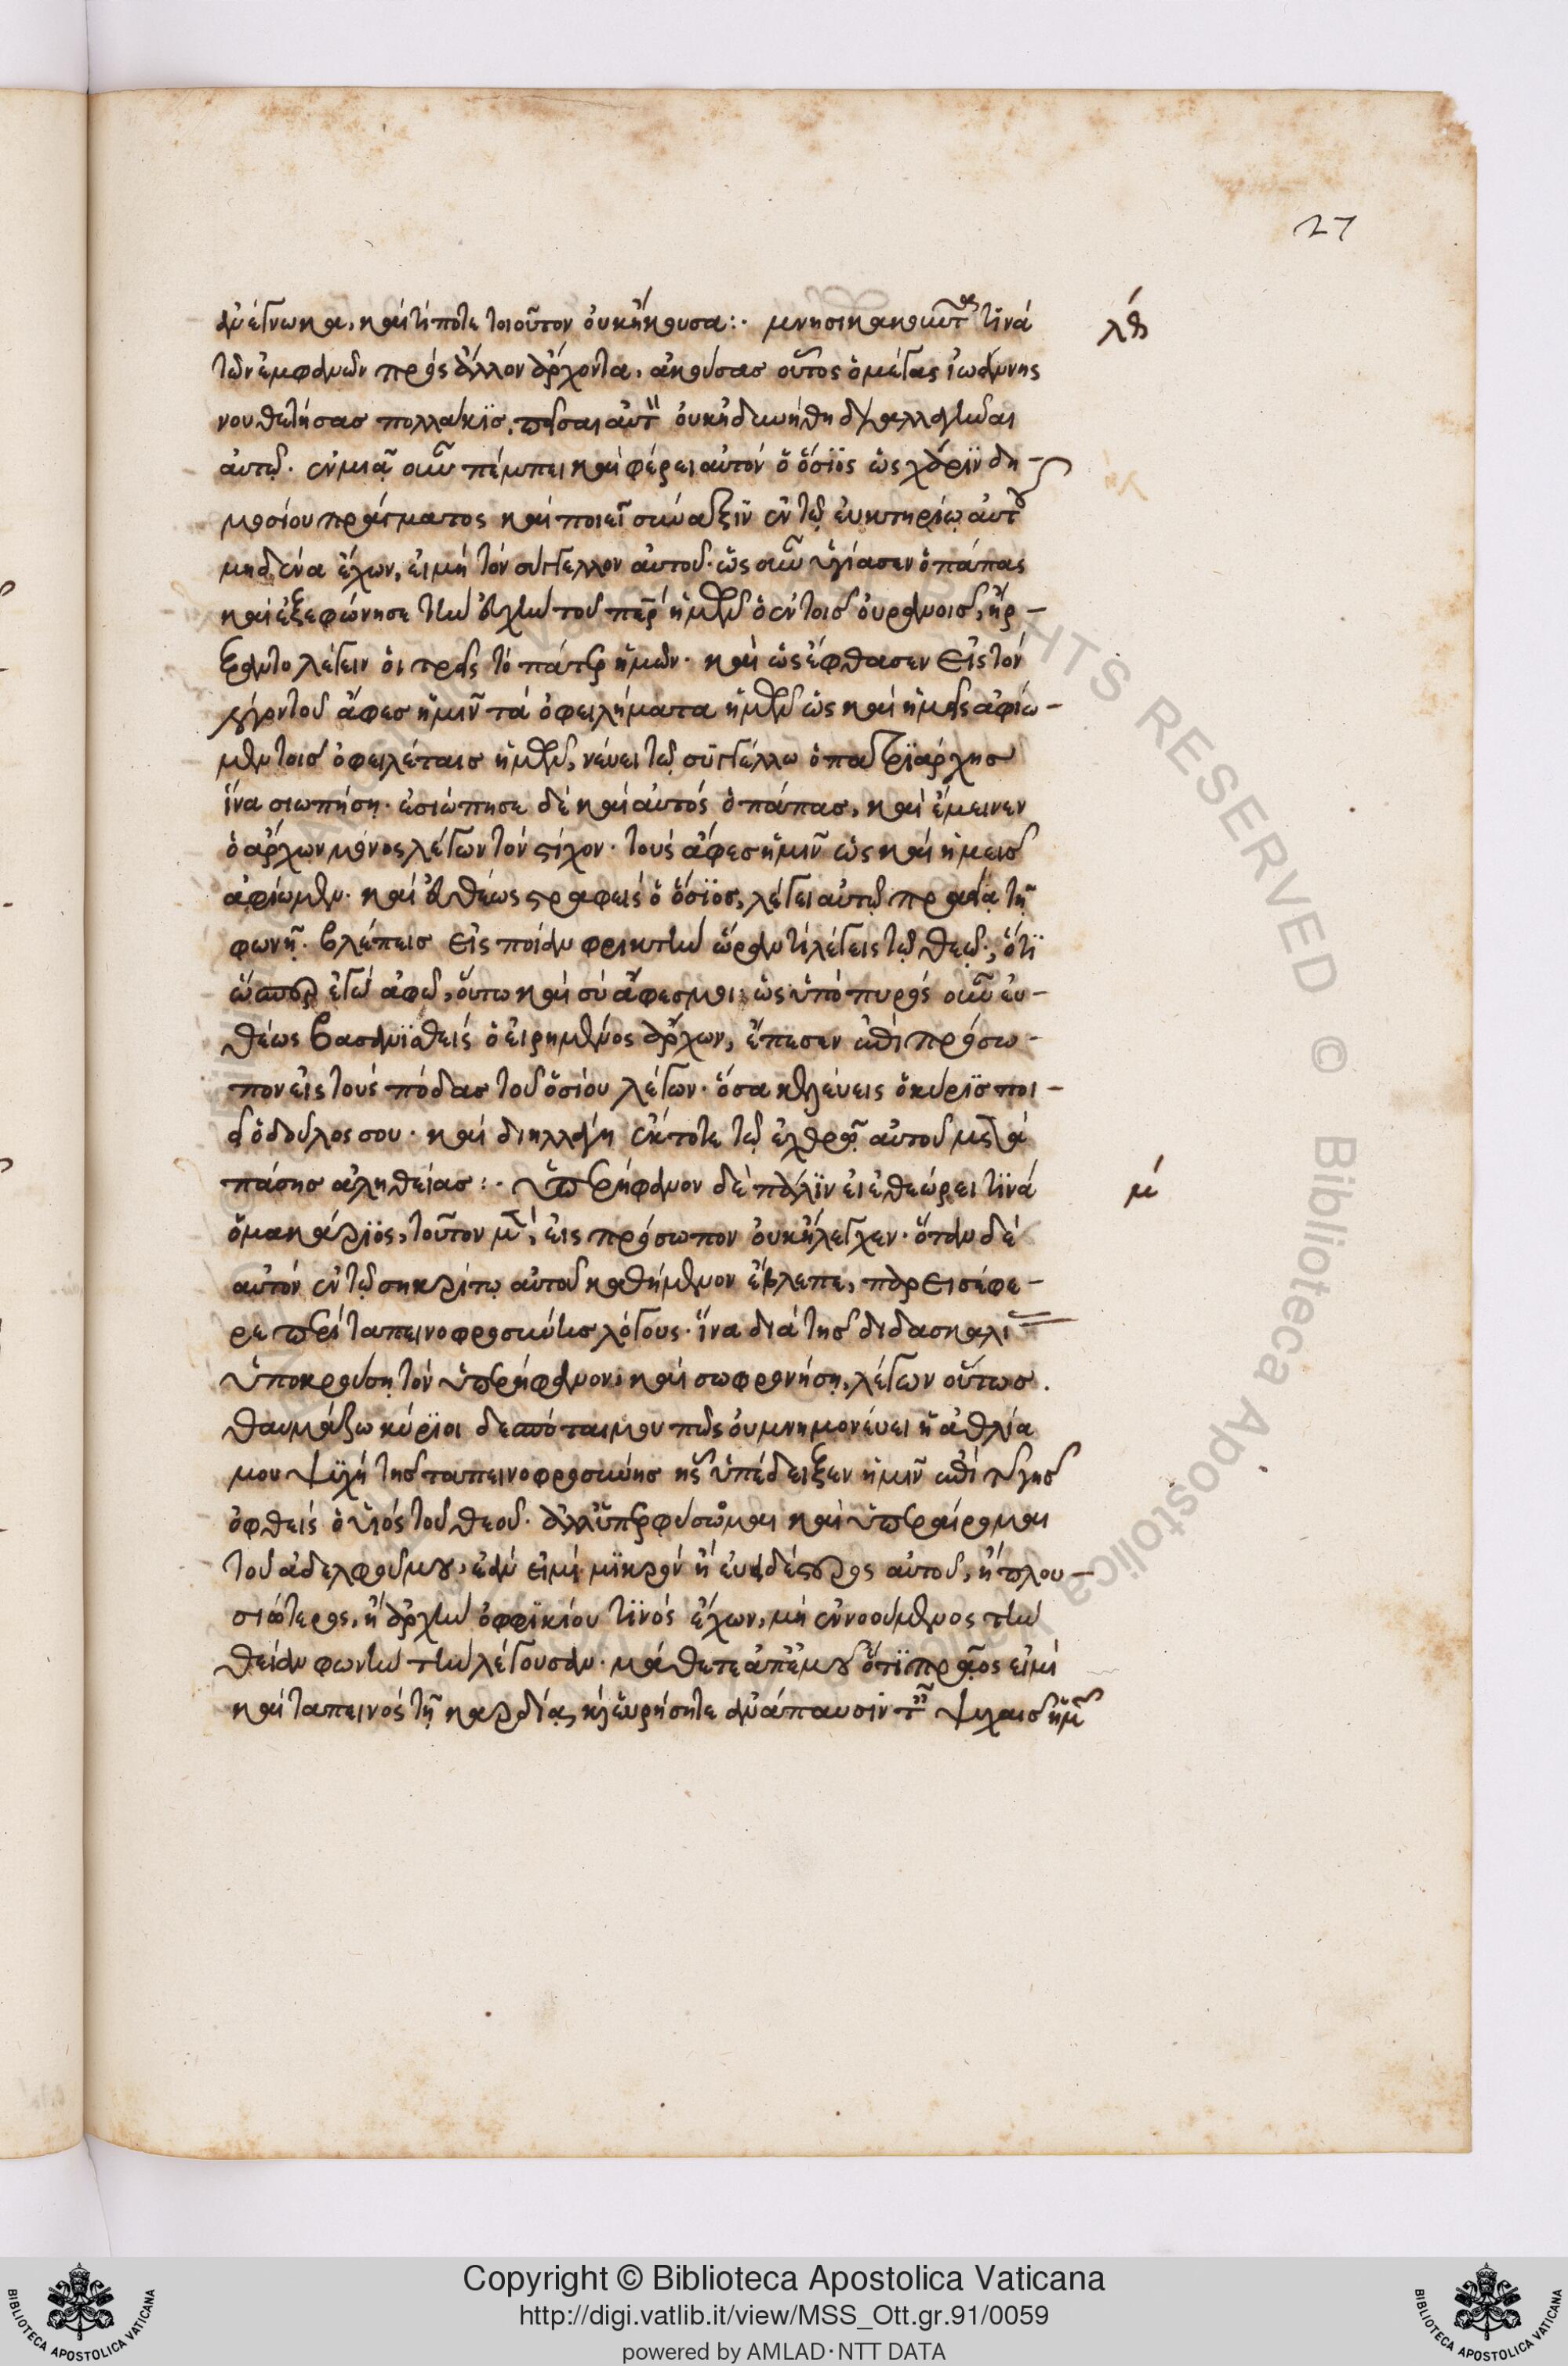 27
ἀνέγνωκα, καὶ τί ποτε τοιοῦτον οὐκ ἤκουσα:· μνησικακοῦντα τινά
λθ
τῶν ἐμφανῶν πρὸς ἄλλον ἄρχοντα, ἀκούσας οὗτος ὁ μέγας ἰωάννης
νουθετήσας πολλάκις, πεῖσαι αὐτὸν οὐκ ἠδυνήθη διαλλαγῆναι
αὐτῷ. ἐν μιᾷ οὖν πέμπει καὶ φέρει αὐτόν ὁ ὅσιος ὡς χάριν δη-
μοσίου πράγματος καὶ ποιεῖ σύναξιν ἐν τῷ εὐκτηρίῳ αὐτοῦ
μηδένα ἔχων, εἰ μὴ τὸν σύγκελλον αὐτοῦ. ὡς οὖν ἡγίασεν ὁ πάπας
καὶ ἐξεφώνησε τὴν εὐχὴν τοῦ πατρὸς ἡμῶν ὁ ἐν τοῖς οὐρανοῖς, ἤρ-
ξαντο λέγειν οἱ τρεῖς τὸ πάτερ ἡμῶν. καὶ ὡς ἔφθασεν εἰς τὸν
λόγον τοῦ ἄφες ἡμῖν τὰ ὀφειλήματα ἡμῶν ὡς καὶ ἡμεῖς ἀφίο-
μεν τοῖς ὀφειλέταις ἡμῶν, νεύει τῷ συγκέλλω ὁ πατριάρχης
ἵνα σιωπήσῃ. ἐσιώπησε δὲ καὶ αὐτός ὁ πάπας, καὶ ἔμεινεν
ὁ ἄρχων μόνος λέγων τὸν στίχον. τοὺς ἄφες ἡμῖν ὡς καὶ ἡμεῖς
ἀφίωμεν. καὶ εὐθέως στραφεὶς ὁ ὅσιος, λέγει αὐτῷ πραεία τῇ
φωνῇ. βλέπεις εἰς ποίαν φρικτὴν ὥραν τί λέγεις τῷ θεῷ; ὅτι
ὥσπερ ἐγὼ ἀφῶ, οὕτω καὶ σὺ ἄφες μοι: ὡς ὑπὸ πυρὸς οὖν εὐ-
θέως βασανισθείς ὁ εἰρημένος ἄρχων, ἔπεσεν ἐπὶ πρόσω-
πον εἰς τοὺς πόδας τοῦ ὁσίου λέγων. ὅσα κελεύεις ὁ κύριος ποι-
εῖ ὁ δοῦλος σου. καὶ διηλλάγη ἔκτοτε τῷ ἐχθρῷ αὐτοῦ μετὰ
πάσης ἀληθείας:· ὑπερήφανον δὲ πάλιν εἰ ἐθεώρει τινά
μ
ὁ μακάριος, τοῦτον μὲν, εἰς πρόσωπον οὐκ ἤλεγχεν. ὅταν δὲ
αὐτόν ἐν τῷ σηκρίτῳ αὐτοῦ καθήμενον ἔβλεπε, παρεισέφε-
ρε περὶ ταπεινοφροσύνης λόγους. ἵνα διὰ τῆς διδασκαλίας
ὑποκρούσῃ τὸν ὑπερήφανον, καὶ σωφρονήσῃ, λέγων οὕτως.
θαυμάζω κύριοι δεσπόται μου πῶς οὐ μνημονεύει ἡ ἀθλία
μου ψυχή τῆς ταπεινοφροσύνης ἧς ὑπέδειξεν ἡμῖν ἐπὶ τῆς γῆς
ὀφθεὶς ὁ υἱός τοῦ θεοῦ. ἀλλ' ὑπερφυσῶμαι καὶ ὑπεραίρομαι
τοῦ ἀδελφοῦ μου, ἐὰν εἰμι μικρόν ἢ εὐειδέστερος αὐτοῦ, ἢ πλου-
σιώτερος, ἢ ἀρχὴν ὀφφικίου τινός ἔχων, μὴ ἐννοούμενος τὴν
θείαν φωνὴν τὴν λέγουσαν. μάθετε ἀπ' ἐμοῦ ὅτι πρᾶος εἰμί
καὶ ταπεινός τῇ καρδίᾳ, καὶ εὑρήσητε ἀνάπαυσιν ταῖς ψυχαῖς ἡμῶν